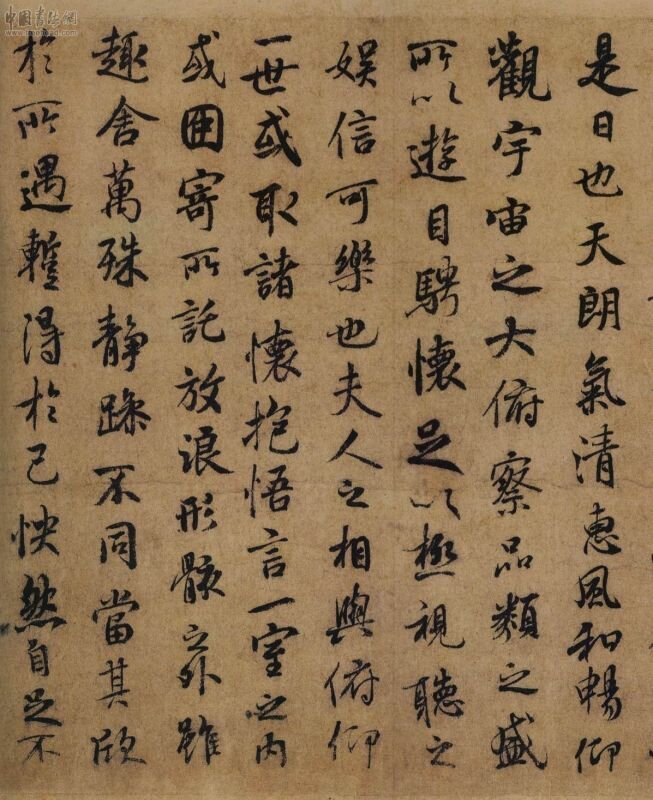 是日也天朗氣清惠風和暢仰
觀宇宙之大俯察品類之盛
所以遊目騁懷足以極視聽之
娛信可樂也夫人之相與俯仰
一世或取諸懷抱悟言一室之內
或因寄所託放浪形骸之外雖
趣舍萬殊靜躁不同當其欣
於所遇蹔得於己怏然自足不
中国書法網